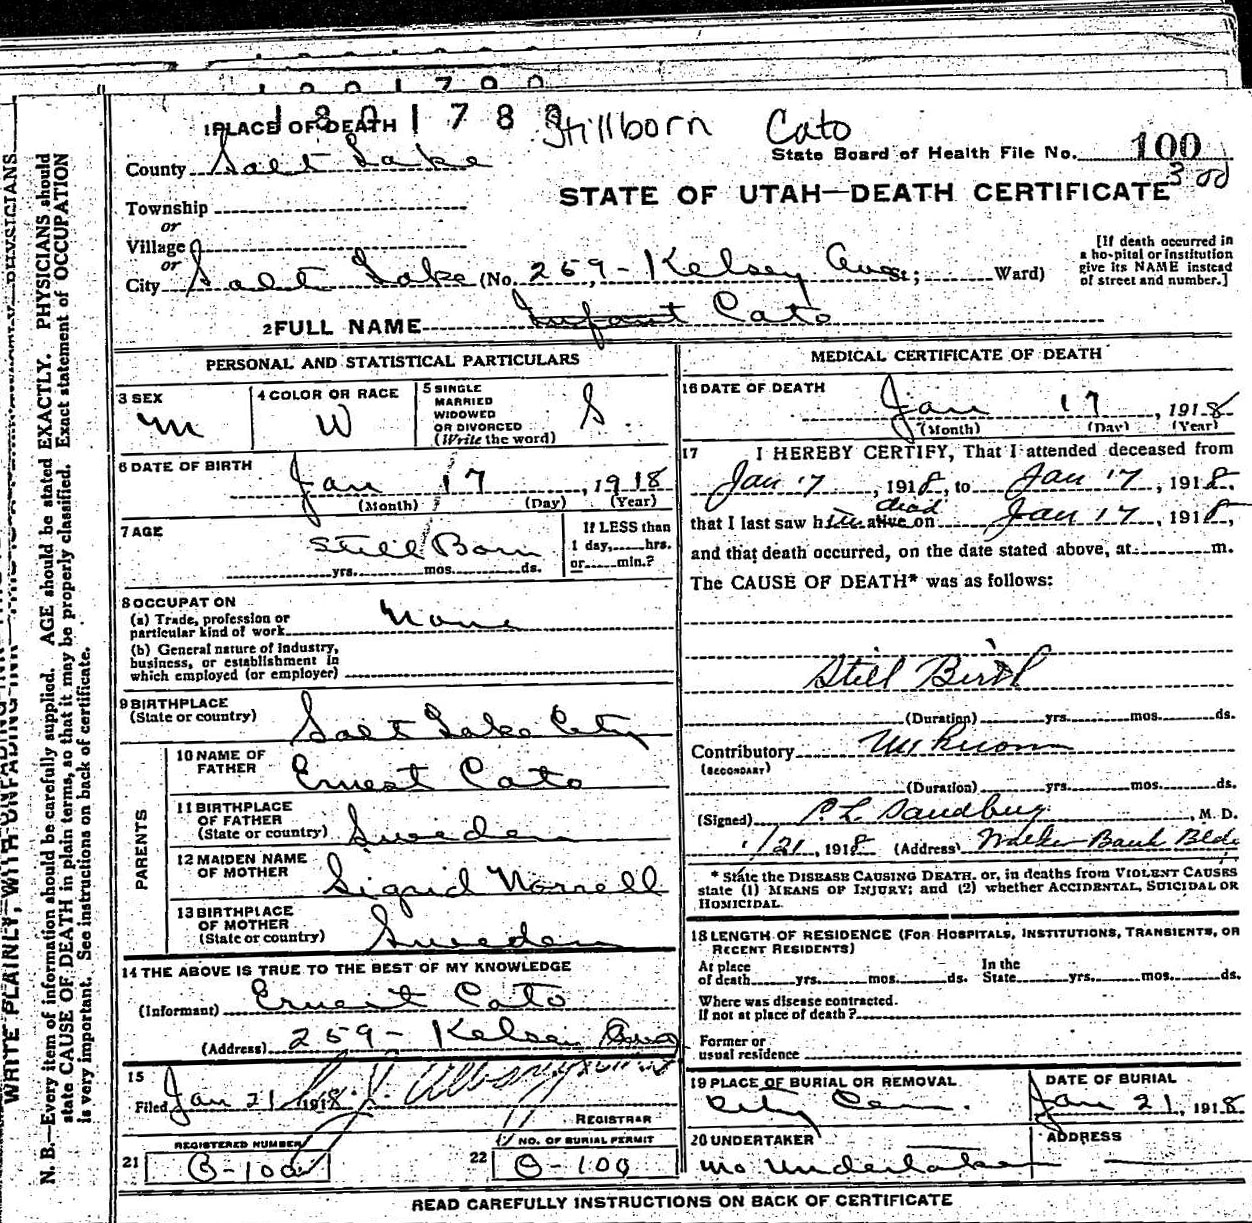 1801788 Stillborn Cato
1 PLACE OF DEATH
State Board of Health File No. 100
County Salt Lake
STATE OF UTAH—DEATH CERTIFICATE
Township
or
Village
or
City Salt Lake (No. 259 - Kelsey Ave St; Ward)
[If death occurred in
a hospital or institution
give its NAME instead
of street and number.]
2 FULL NAME Infant Cato
PERSONAL AND STATISTICAL PARTICULARS
3 SEX
M
4 COLOR OR RACE
W
5 SINGLE
MARRIED
WIDOWED
OR DIVORCED
(Write the word)
S.
6 DATE OF BIRTH
Jan 17, 1918
(Month) (Day) (Year)
7 AGE
Still Born
yrs. mos. ds.
If LESS than
1 day, hrs.
or min.?
8 OCCUPATON
(a) Trade, profession or
particular kind of work None
(b) General nature of industry,
business, or establishment in
which employed (or employer)
9 BIRTHPLACE
(State or country)
Salt Lake City
PARENTS
10 NAME OF
FATHER
Ernest Cato
11 BIRTHPLACE
OF FATHER
(State or country)
Sweden
12 MAIDEN NAME
OF MOTHER
Sigrid Norrell
13 BIRTHPLACE
OF MOTHER
(State or country)
Sweden
14 THE ABOVE IS TRUE TO THE BEST OF MY KNOWLEDGE
(Informant) Ernest Cato
(Address) 259 - Kelsey Ave
15
Filed Jan 21 1918
REGISTRAR
REGISTERED NUMBER
21 B-100
NO. OF BURIAL PERMIT
22 O-100
MEDICAL CERTIFICATE OF DEATH
16 DATE OF DEATH
Jan 17, 1918
(Month) (Day) (Year)
17 I HEREBY CERTIFY, That I attended deceased from
Jan 17, 1918, to Jan 17, 1918.
dead
that I last saw him alive on Jan 17, 1918,
and that death occurred, on the date stated above, at m.
The CAUSE OF DEATH* was as follows:
Still Birth
(Duration) yrs. mos. ds.
Contributory Unknown
(SECONDARY)
(Duration) yrs. mos. ds.
(Signed) P. L. Sandberg, M. D.
1/21, 1918 (Address) Walker Bank Bldg
* State the DISEASE CAUSING DEATH, or, in deaths from VIOLENT CAUSES
state (1) MEANS OF INJURY; and (2) whether ACCIDENTAL, SUICIDAL OR
HOMICIDAL.
18 LENGTH OF RESIDENCE (FOR HOSPITALS, INSTITUTIONS, TRANSIENTS, OR
RECENT RESIDENTS)
At place
of death yrs. mos. ds.
In the
State yrs. mos. ds.
Where was disease contracted.
If not at place of death?
Former or
usual residence
19 PLACE OF BURIAL OR REMOVAL
City Cem.
DATE OF BURIAL
Jan 21, 1918
20 UNDERTAKER
No Undertaker
ADDRESS
READ CAREFULLY INSTRUCTIONS ON BACK OF CERTIFICATE
WRITE PLAINLY, WITH UNFADING INK
N. B.—Every item of information should be carefully supplied. AGE should be stated EXACTLY. PHYSICIANS should
state CAUSE OF DEATH in plain terms, so that it may be properly classified. Exact statement of OCCUPATION
is very important. See instructions on back of certificate.